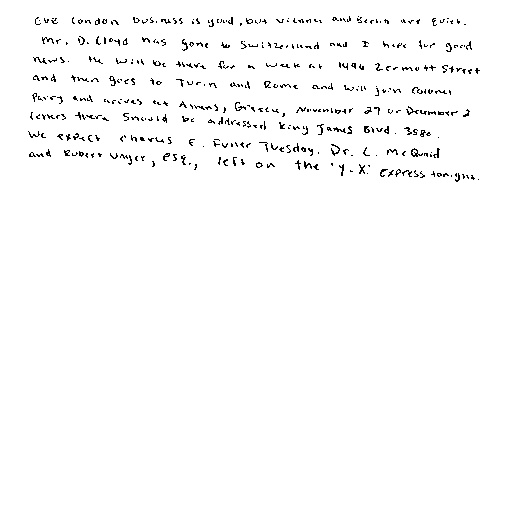 Our London business is good, but Vienna and Berlin are quiet.
Mr. D. Lloyd has gone to Switzerland and I hope for good
news. He will be there for a week at 1496 Zermott Street
and then goes to Turin and Rome and will join Colonel
Parry and arrives at Athens, Greece, November 27 or December 2
Letters there should be addressed King James Blvd. 3580.
We expect Charles E. Fuller Tuesday. Dr. L. McQuaid
and Robert Unger, Esq., left on the 'Y.X.' Express tonight.